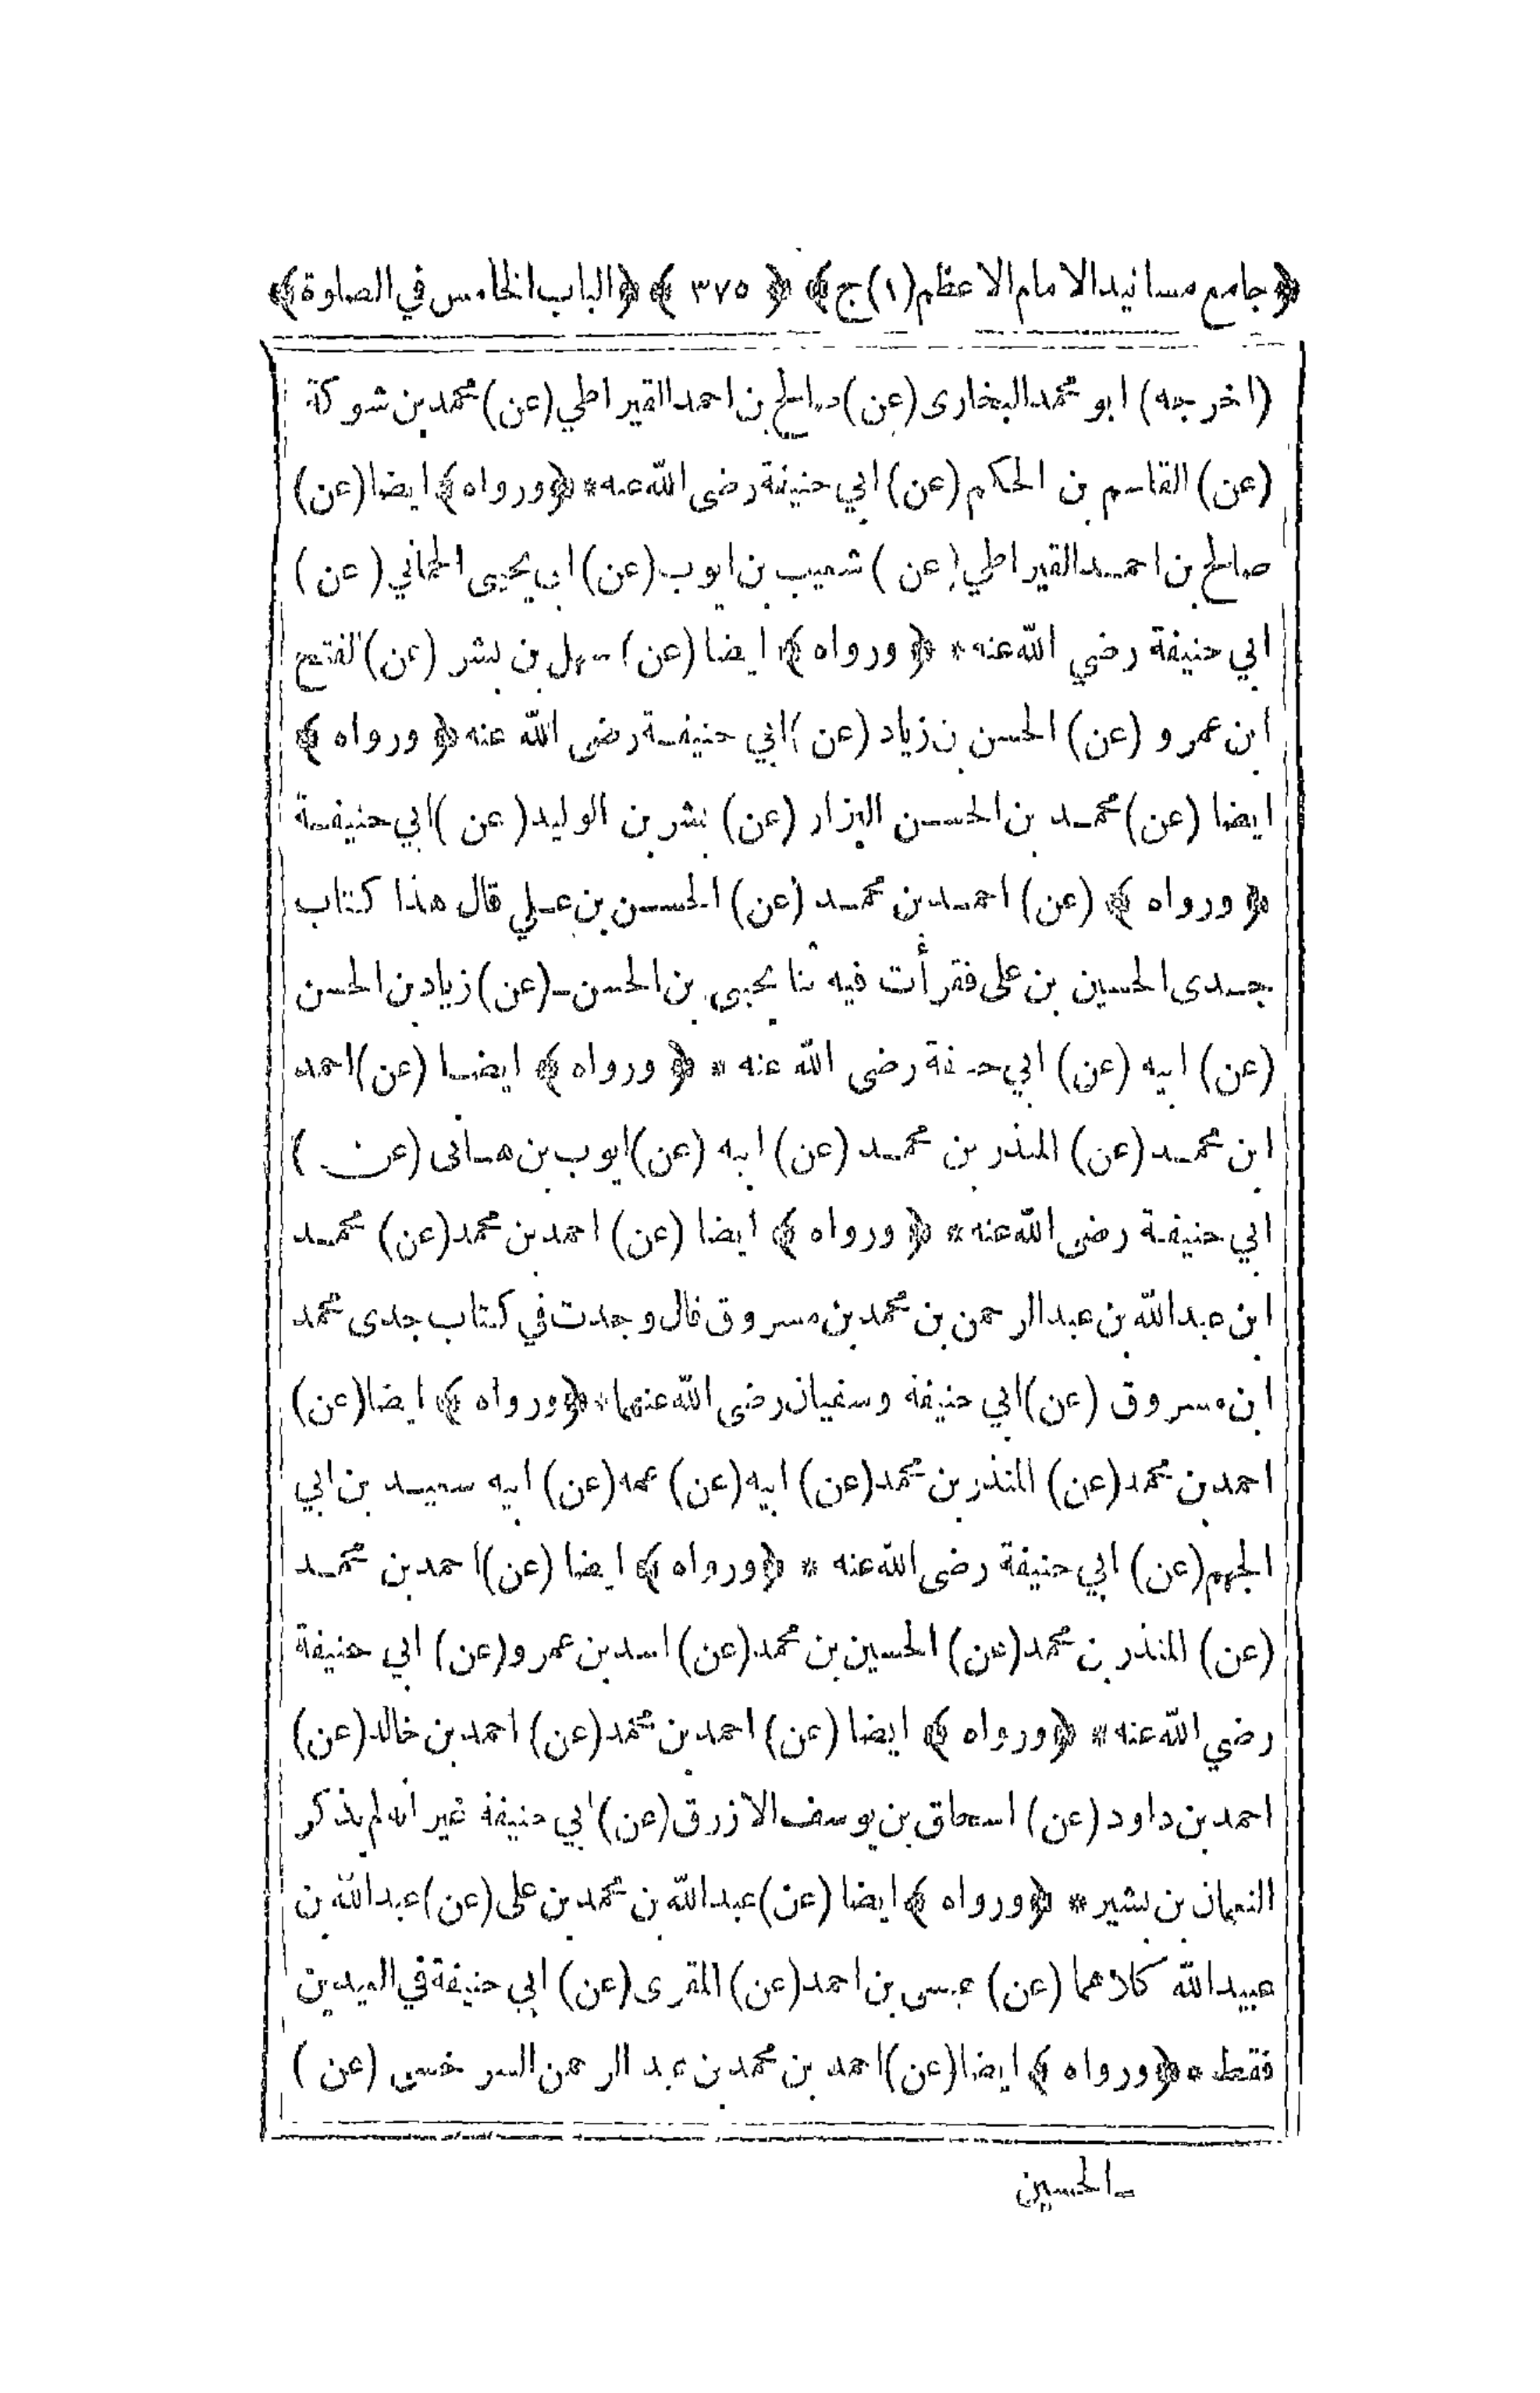 ﴿جامع مسانيد الامام الاعظم (١) ج﴾ ﴿ ٣٧٥ ﴾ ﴿الباب الخامس في الصلوة﴾
(اخرجه) ابو محمد البخارى (عن) صالح بن احمد القيراطي (عن) محمد بن شوكة
(عن) القاسم بن الحكم (عن) ابي حنيفة رضى الله عنه * ﴿ورواه﴾ ايضا (عن)
صالح بن احمد القيراطي (عن) شعيب بن ايوب (عن) ابى يحيى الحماني (عن)
ابي حنيفة رضي الله عنه * ﴿ورواه﴾ ايضا (عن) سهل بن بشر (عن) الفتح
ابن عمرو (عن) الحسن بن زياد (عن) ابي حنيفة رضى الله عنه ﴿ورواه﴾
ايضا (عن) محمد بن الحسن البزار (عن) بشر بن الوليد (عن) ابي حنيفة
﴿ورواه﴾ (عن) احمد بن محمد (عن) الحسن بن علي قال هذا كتاب
جدى الحسين بن على فقرأت فيه ثنا يحيى بن الحسن ـ (عن) زياد بن الحسن
(عن) ابيه (عن) ابي حنيفة رضى الله عنه * ﴿ورواه﴾ ايضا (عن) احمد
ابن محمد (عن) المنذر بن محمد (عن) ابيه (عن) ايوب بن هانى (عن)
ابي حنيفة رضى الله عنه * ﴿ورواه﴾ ايضا (عن) احمد بن محمد (عن) محمد
ابن عبد الله بن عبد الرحمن بن محمد بن مسروق قال وجدت في كتاب جدى محمد
ابن مسروق (عن) ابي حنيفة وسفيان رضى الله عنهما * ﴿ورواه﴾ ايضا (عن)
احمد بن محمد (عن) المنذر بن محمد (عن) ابيه (عن) عمه (عن) ابيه سعيد بن ابي
الجهم (عن) ابي حنيفة رضى الله عنه * ﴿ورواه﴾ ايضا (عن) احمد بن محمد
(عن) المنذر بن محمد (عن) الحسين بن محمد (عن) اسد بن عمرو (عن) ابي حنيفة
رضي الله عنه * ﴿ورواه﴾ ايضا (عن) احمد بن محمد (عن) احمد بن خالد (عن)
احمد بن داود (عن) اسحاق بن يوسف الازرق (عن) ابي حنيفة غير انه لم يذكر
النعمان بن بشير * ﴿ورواه﴾ ايضا (عن) عبد الله بن محمد بن على (عن) عبد الله بن
عبيد الله كلاهما (عن) عيسى بن احمد (عن) المقرى (عن) ابي حنيفة في العيدين
فقط * ﴿ورواه﴾ ايضا (عن) احمد بن محمد بن عبد الرحمن السرخسى (عن)
ـ الحسين